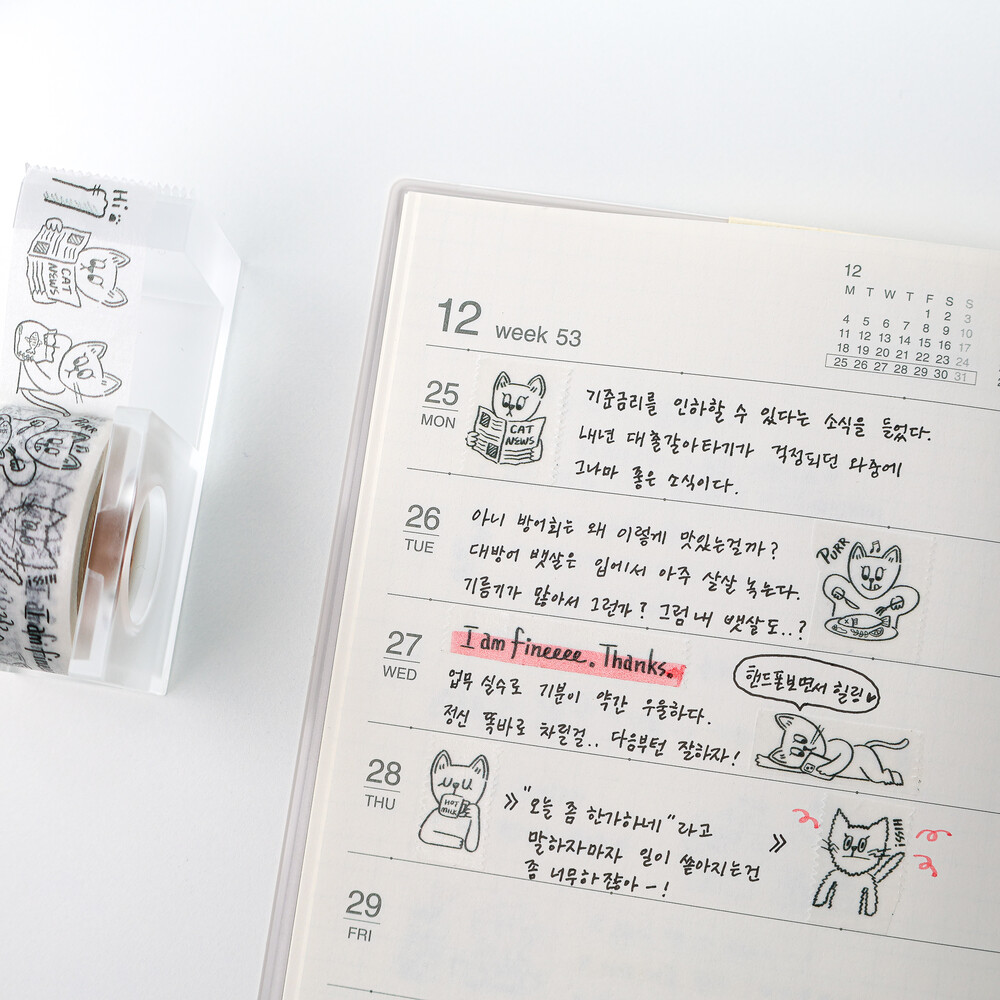 Hi
CAT NEWS
PURR
Hiss!
I am fin
12
M T W T F S S
1 2 3
4 5 6 7 8 9 10
11 12 13 14 15 16 17
18 19 20 21 22 23 24
25 26 27 28 29 30 31
12 week 53
25
MON
CAT
NEWS
기준금리를 인하할 수 있다는 소식을 들었다.
내년 대출갈아타기가 걱정되던 와중에
그나마 좋은 소식이다.
26
TUE
아니 방어회는 왜 이렇게 맛있는걸까?
대방어 뱃살은 입에서 아주 살살 녹는다.
기름기가 많아서 그런가? 그럼 내 뱃살도..?
PURR
27
WED
I am fineeee. Thanks.
업무 실수로 기분이 약간 우울하다.
정신 똑바로 차릴걸.. 다음부턴 잘하자!
핸드폰보면서 힐링♡
28
THU
HOT
MILK
》"오늘 좀 한가하네"라고 》
말하자마자 일이 쏟아지는건
좀 너무하잖아-!
Hiss!
29
FRI